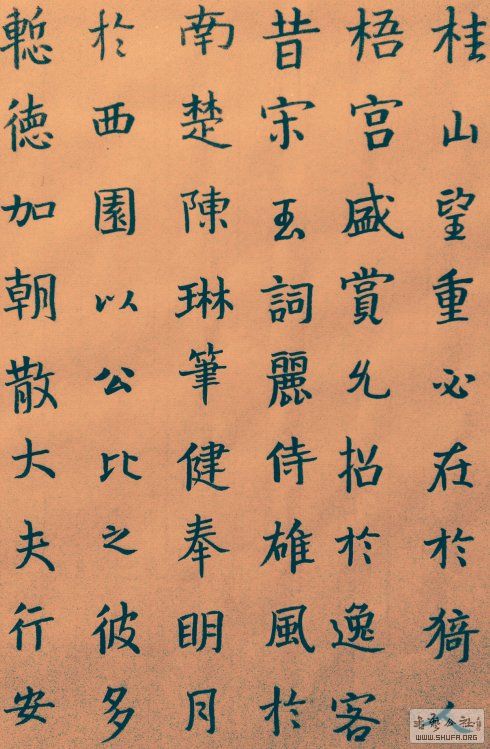 桂山望重必在於猗人
梧宮盛賞允招於逸客
昔宋玉詞麗侍雄風於
南楚陳琳筆健奉明月
於西園以公比之彼多
慙德加朝散大夫行安
WWW.SHUFA.ORG